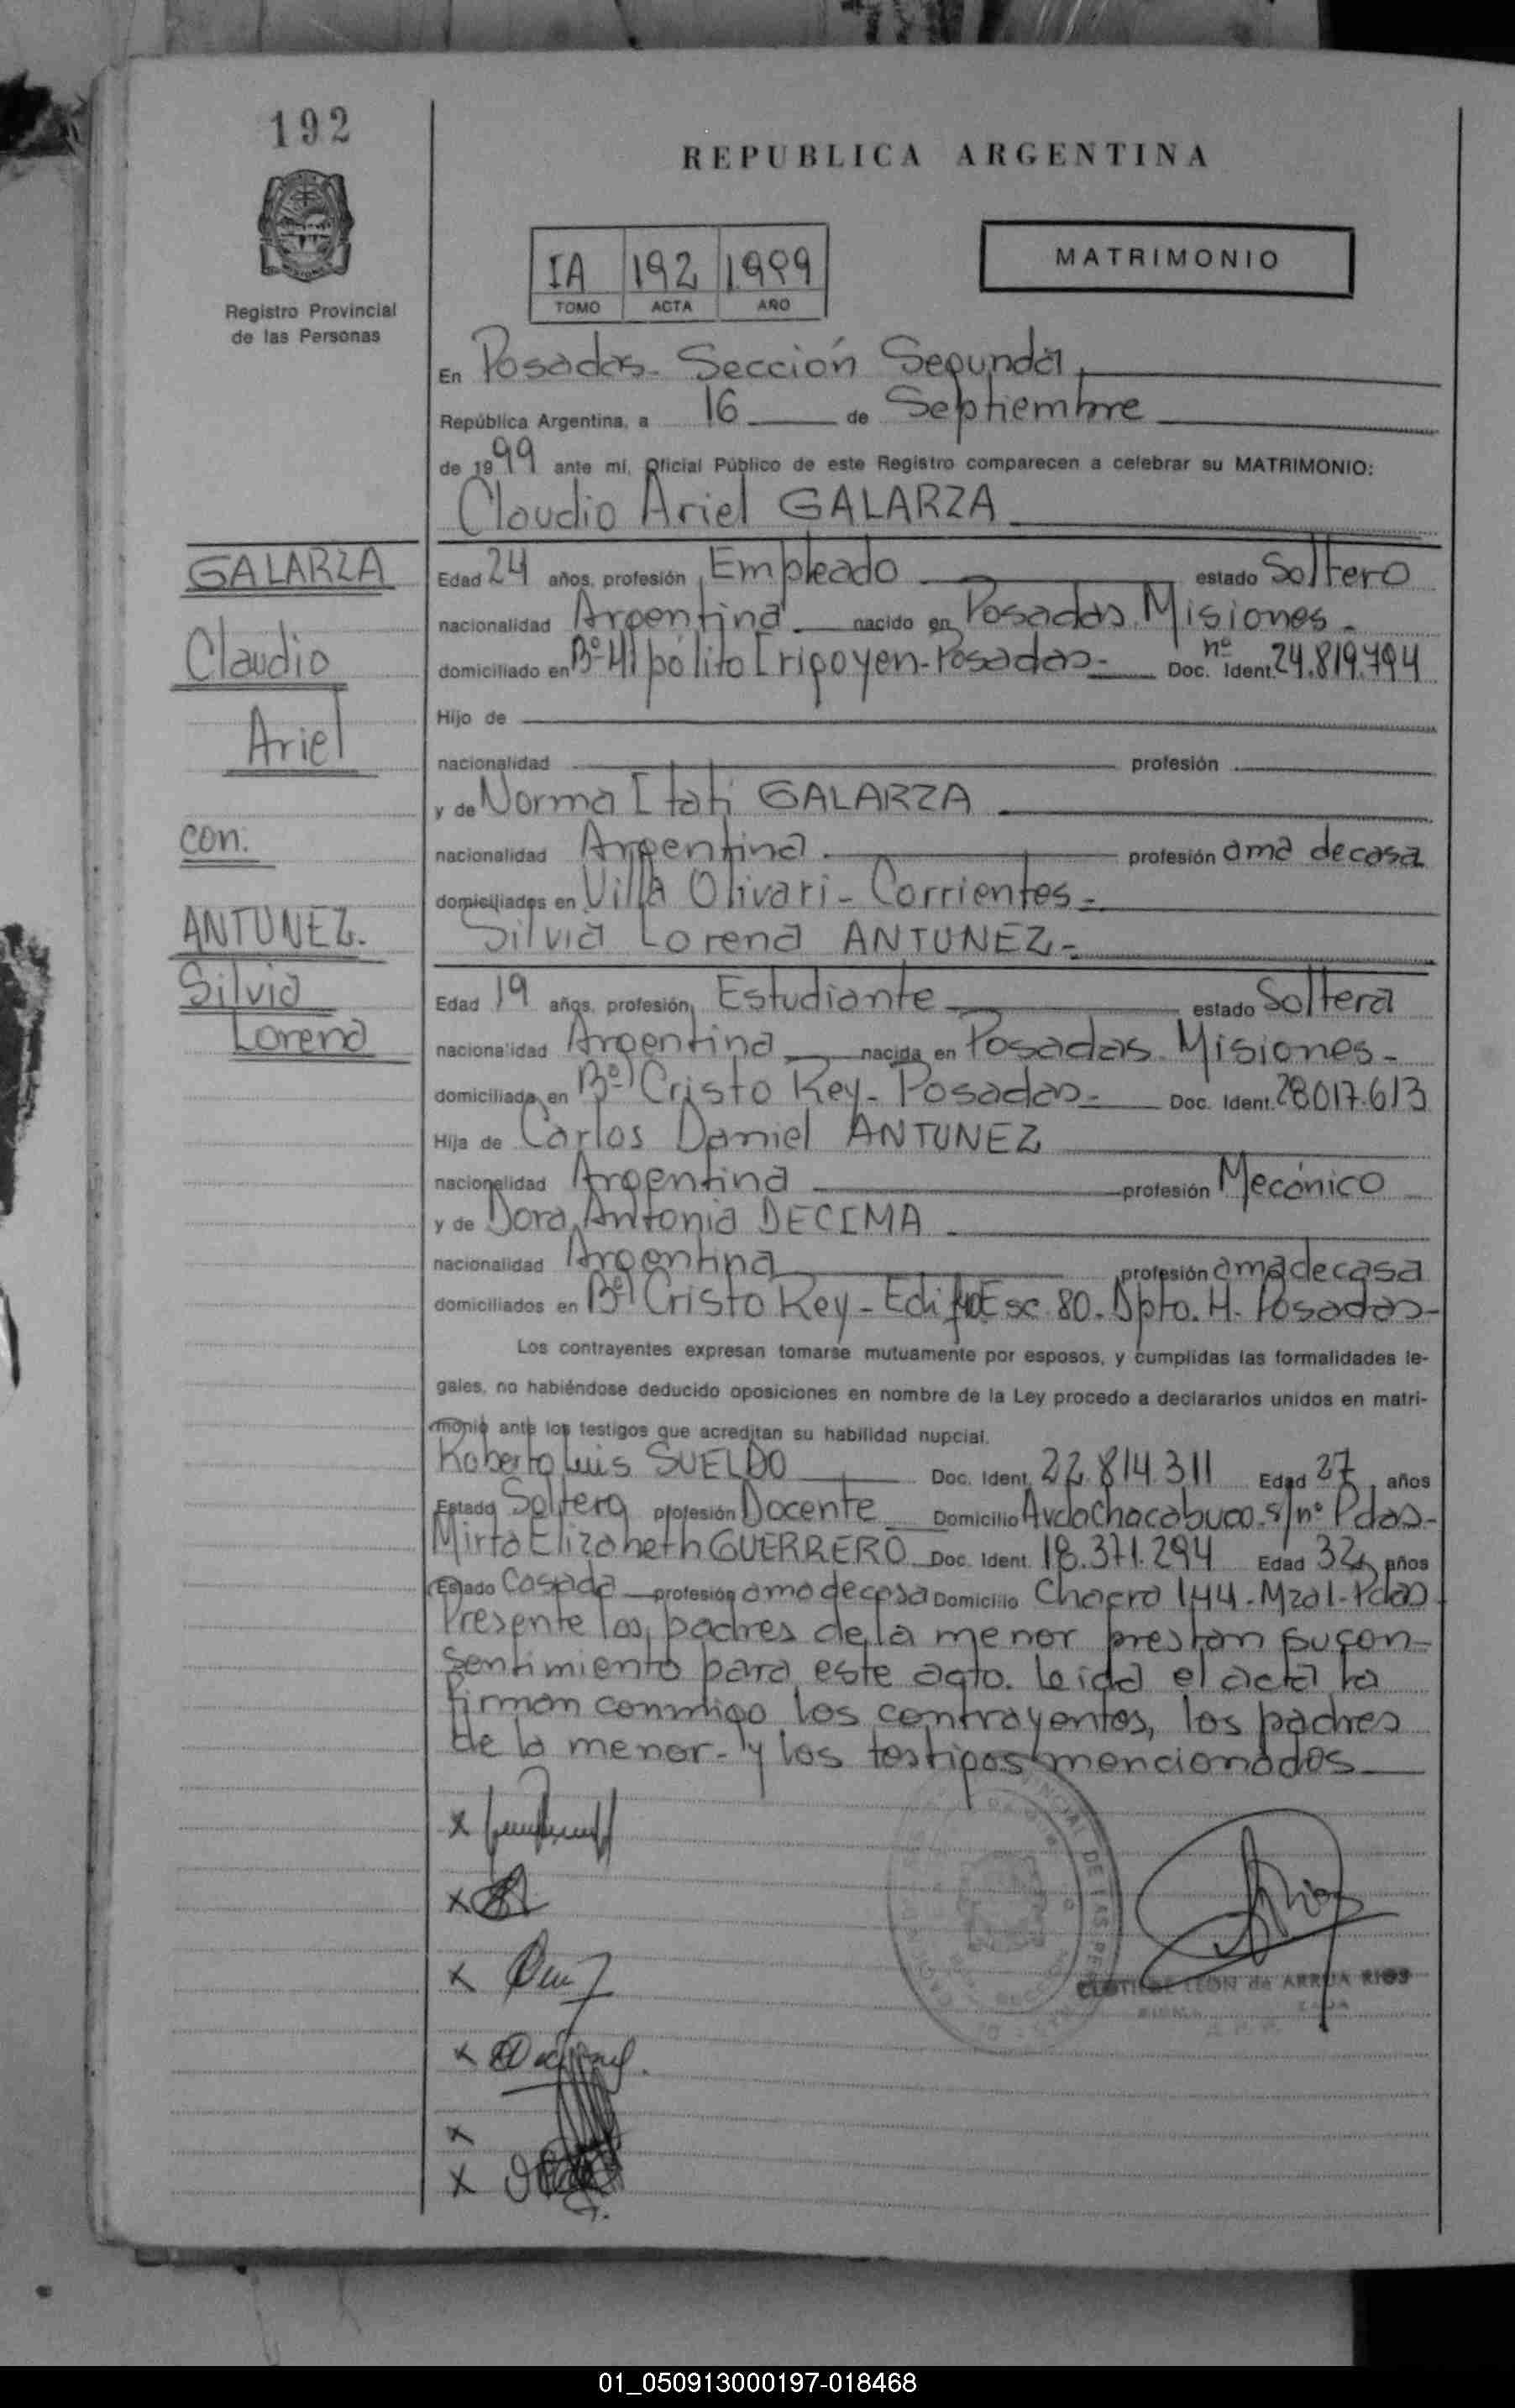 192
REPUBLICA ARGENTINA
IA 192 1999
TOMO ACTA AÑO
MATRIMONIO
Registro Provincial
de las Personas
En Posadas- Sección Segunda
República Argentina, a 16 de Septiembre
de 1999 ante mí, Oficial Público de este Registro comparecen a celebrar su MATRIMONIO:
Claudio Ariel GALARZA
GALARZA
Claudio
Ariel
con.
ANTUNEZ.
Silvia
Lorena
Edad 24 años, profesión Empleado estado Soltero
nacionalidad Argentina nacido en Posadas Misiones-
domiciliado en Bº Hipólito Irigoyen-Posadas- Doc. nº Ident. 24.819.794
Hijo de
nacionalidad profesión
y de Norma Itatí GALARZA
nacionalidad Argentina. profesión ama de casa
domiciliados en Villa Olivari- Corrientes-
Silvia Lorena ANTUNEZ-
Edad 19 años, profesión Estudiante estado Soltera
nacionalidad Argentina nacida en Posadas Misiones-
domiciliada en Bº Cristo Rey- Posadas- Doc. Ident. 28017.613
Hija de Carlos Daniel ANTUNEZ
nacionalidad Argentina profesión Mecánico
y de Dora Antonia DECIMA
nacionalidad Argentina profesión ama de casa
domiciliados en Bº Cristo Rey- Edif. Esc. 80- Dpto. H- Posadas-
Los contrayentes expresan tomarse mutuamente por esposos, y cumplidas las formalidades le-
gales, no habiéndose deducido oposiciones en nombre de la Ley procedo a declararlos unidos en matri-
monio ante los testigos que acreditan su habilidad nupcial.
Roberto Luis SUELDO Doc. Ident. 22.814.311 Edad 27 años
Estado Soltero profesión Docente Domicilio Avda Chacabuco- s/nº Pdas-
Mirta Elizabeth GUERRERO Doc. Ident. 18.371.294 Edad 32 años
Estado Casada profesión ama de casa Domicilio Chacra 144-Mza1-Pdas
Presente los padres de la menor prestan su con-
sentimiento para este acto. Leida el acta la
firman conmigo los contrayentes, los padres
de la menor- y los testigos mencionados
CLOTILDE LEON de ARRUA RIOS
01_050913000197-018468